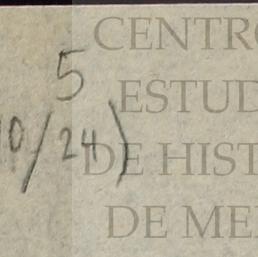 CENTRO
5
ESTUD
10/24)
DE HIST
DE ME